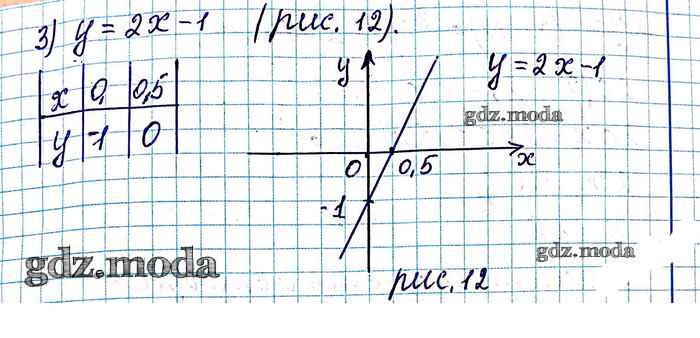 3) y = 2x - 1 (рис. 12).
x 0 0,5
y -1 0
y
y = 2x - 1
gdz.moda
0 0,5 x
-1
gdz.moda
gdz.moda
рис. 12